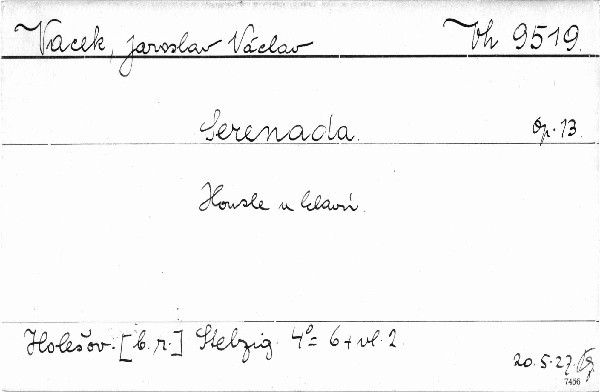 Vacek, Jaroslav Václav Vh 9519.
Serenada. Op. 13
Housle a klavír.
Holešov. [b. r.] Stelzig. 4° = 6 + vl. 2
20. 5. 27.
7456